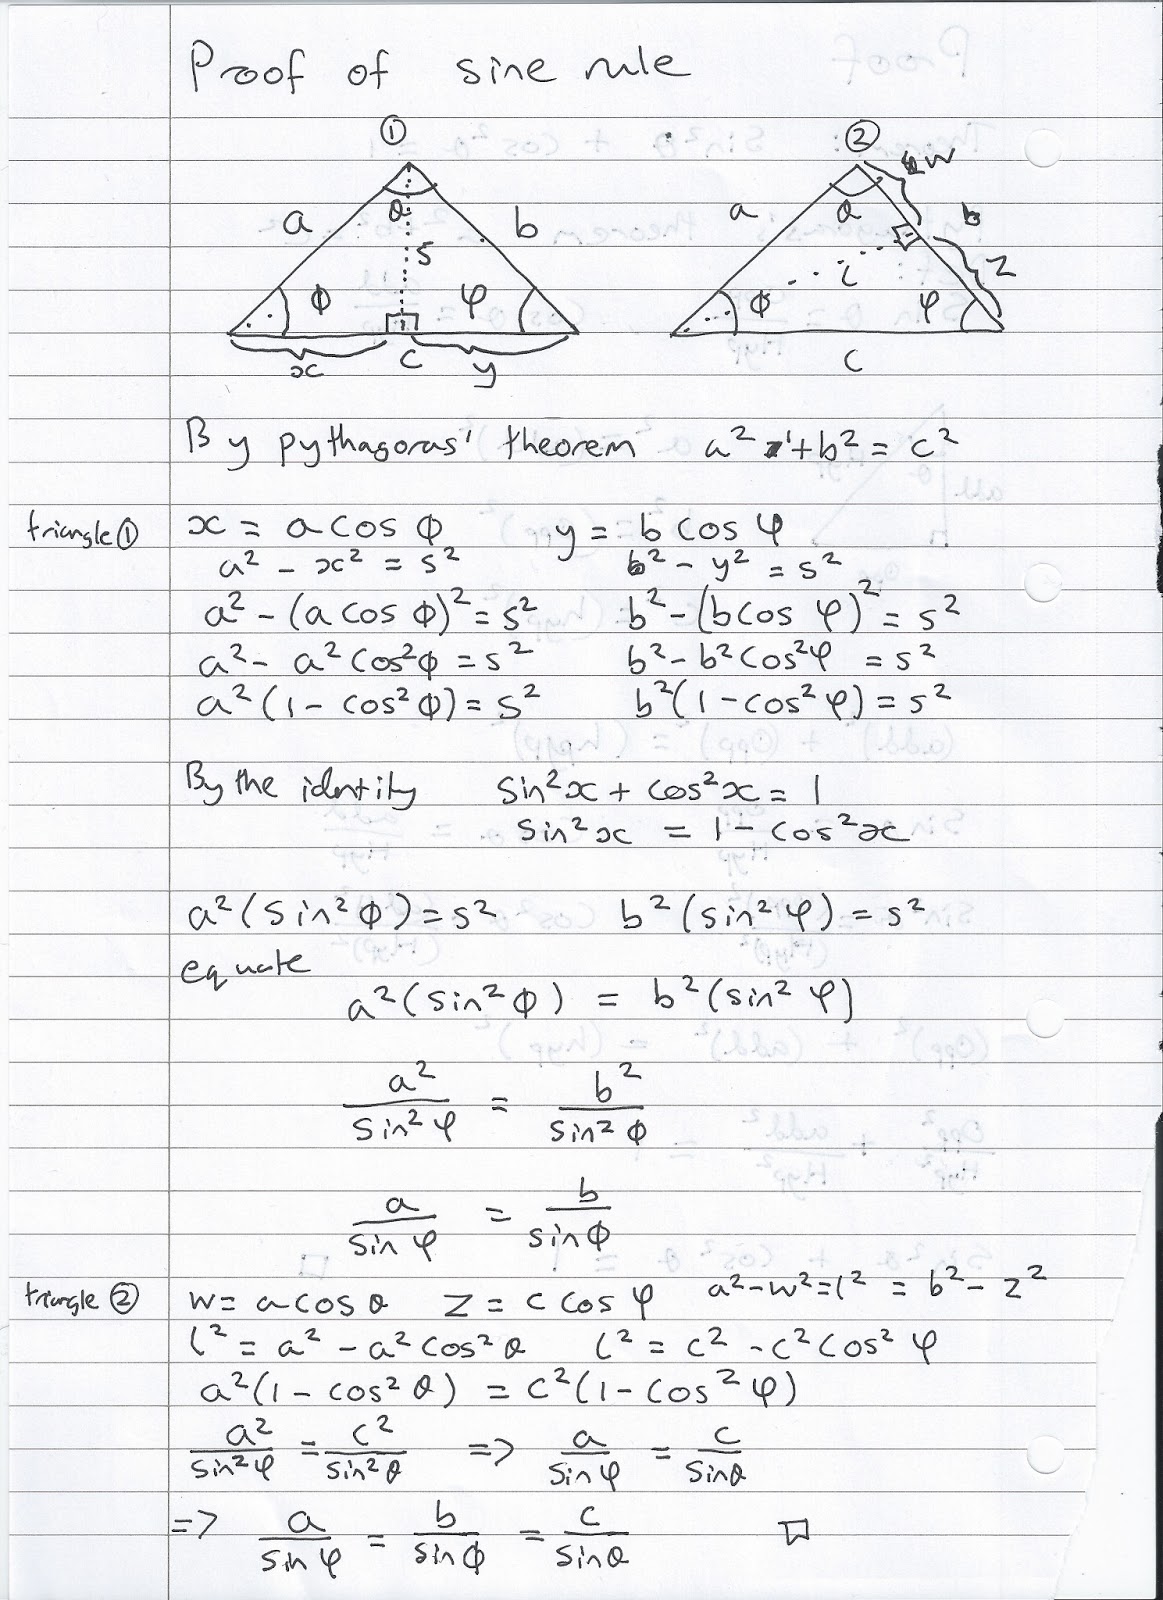 Proof of sine rule
① ②
a θ b s φ ψ x c y
a θ w b l z φ ψ c
By pythagoras' theorem a² + b² = c²
triangle① x = a cos φ y = b cos ψ
a² - x² = s² b² - y² = s²
a² - (a cos φ)² = s² b² - (b cos ψ)² = s²
a² - a² cos²φ = s² b² - b² cos²ψ = s²
a² (1 - cos² φ) = s² b² (1 - cos² ψ) = s²
By the identity sin²x + cos²x = 1
sin²x = 1 - cos²x
a² (sin² φ) = s² b² (sin² ψ) = s²
equate
a² (sin² φ) = b² (sin² ψ)
a²/sin² ψ = b²/sin² φ
a/sin ψ = b/sin φ
triangle ② w = a cos θ z = c cos ψ a² - w² = l² = b² - z²
l² = a² - a² cos² θ l² = c² - c² cos² ψ
a² (1 - cos² θ) = c² (1 - cos² ψ)
a²/sin² ψ = c²/sin² θ => a/sin ψ = c/sin θ
=> a/sin ψ = b/sin φ = c/sin θ □